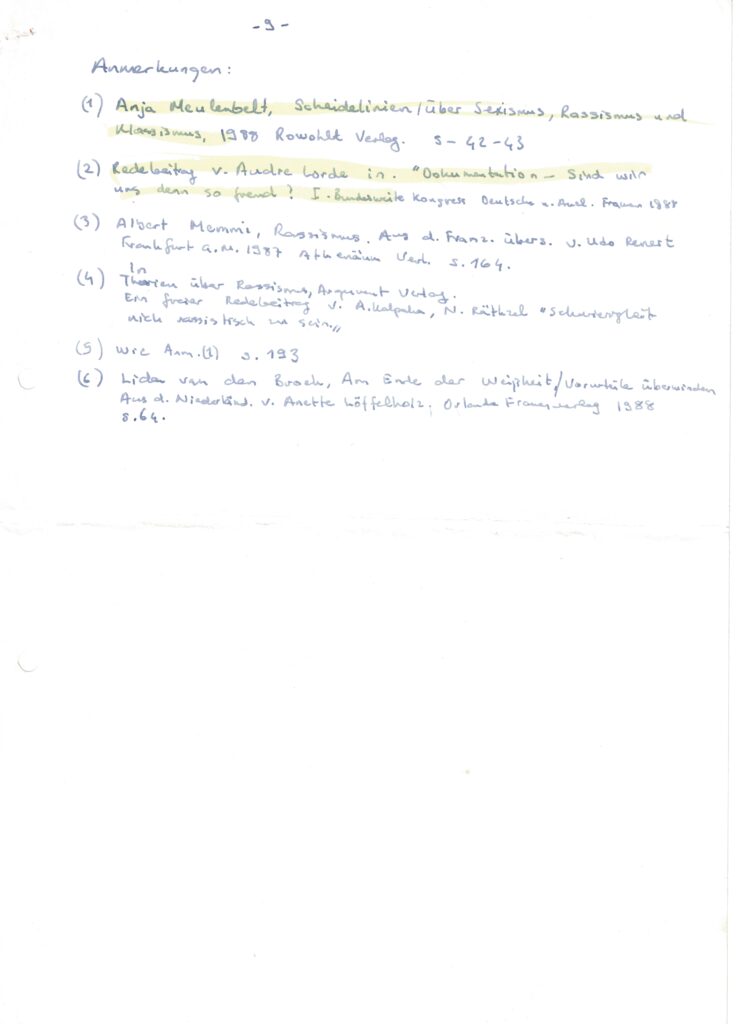 - 9 -
Anmerkungen:
(1) Anja Meulenbelt, Scheidelinien/über Sexismus, Rassismus und
Klassismus, 1988 Rowohlt Verlag. S - 42-43
(2) Redebeitrag v. Audre Lorde in. "Dokumentation - Sind wir
uns denn so fremd? I. Bundesweite Kongress Deutsche u. Ausl. Frauen
(3) Albert Memmi, Rassismus. Aus d. Franz. übers. v. Udo Renert
Frankfurt a.M. 1987 Athenäum Verl. S. 164.
In
(4) Theorien über Rassismus, Argument Verlag.
Ein freier Redebeitrag v. A. Kalpaka, N. Räthzel "Schwierigkeit
nich rassistisch zu sein„
(5) Wie Anm. (1) S. 193
(6) Lida van den Broek, Am Ende der Weißheit/Vorurteile überwinden
Aus d. Niederländ. v. Anette Löffelholz, Orlanda Frauenverlag 1988
S. 64.